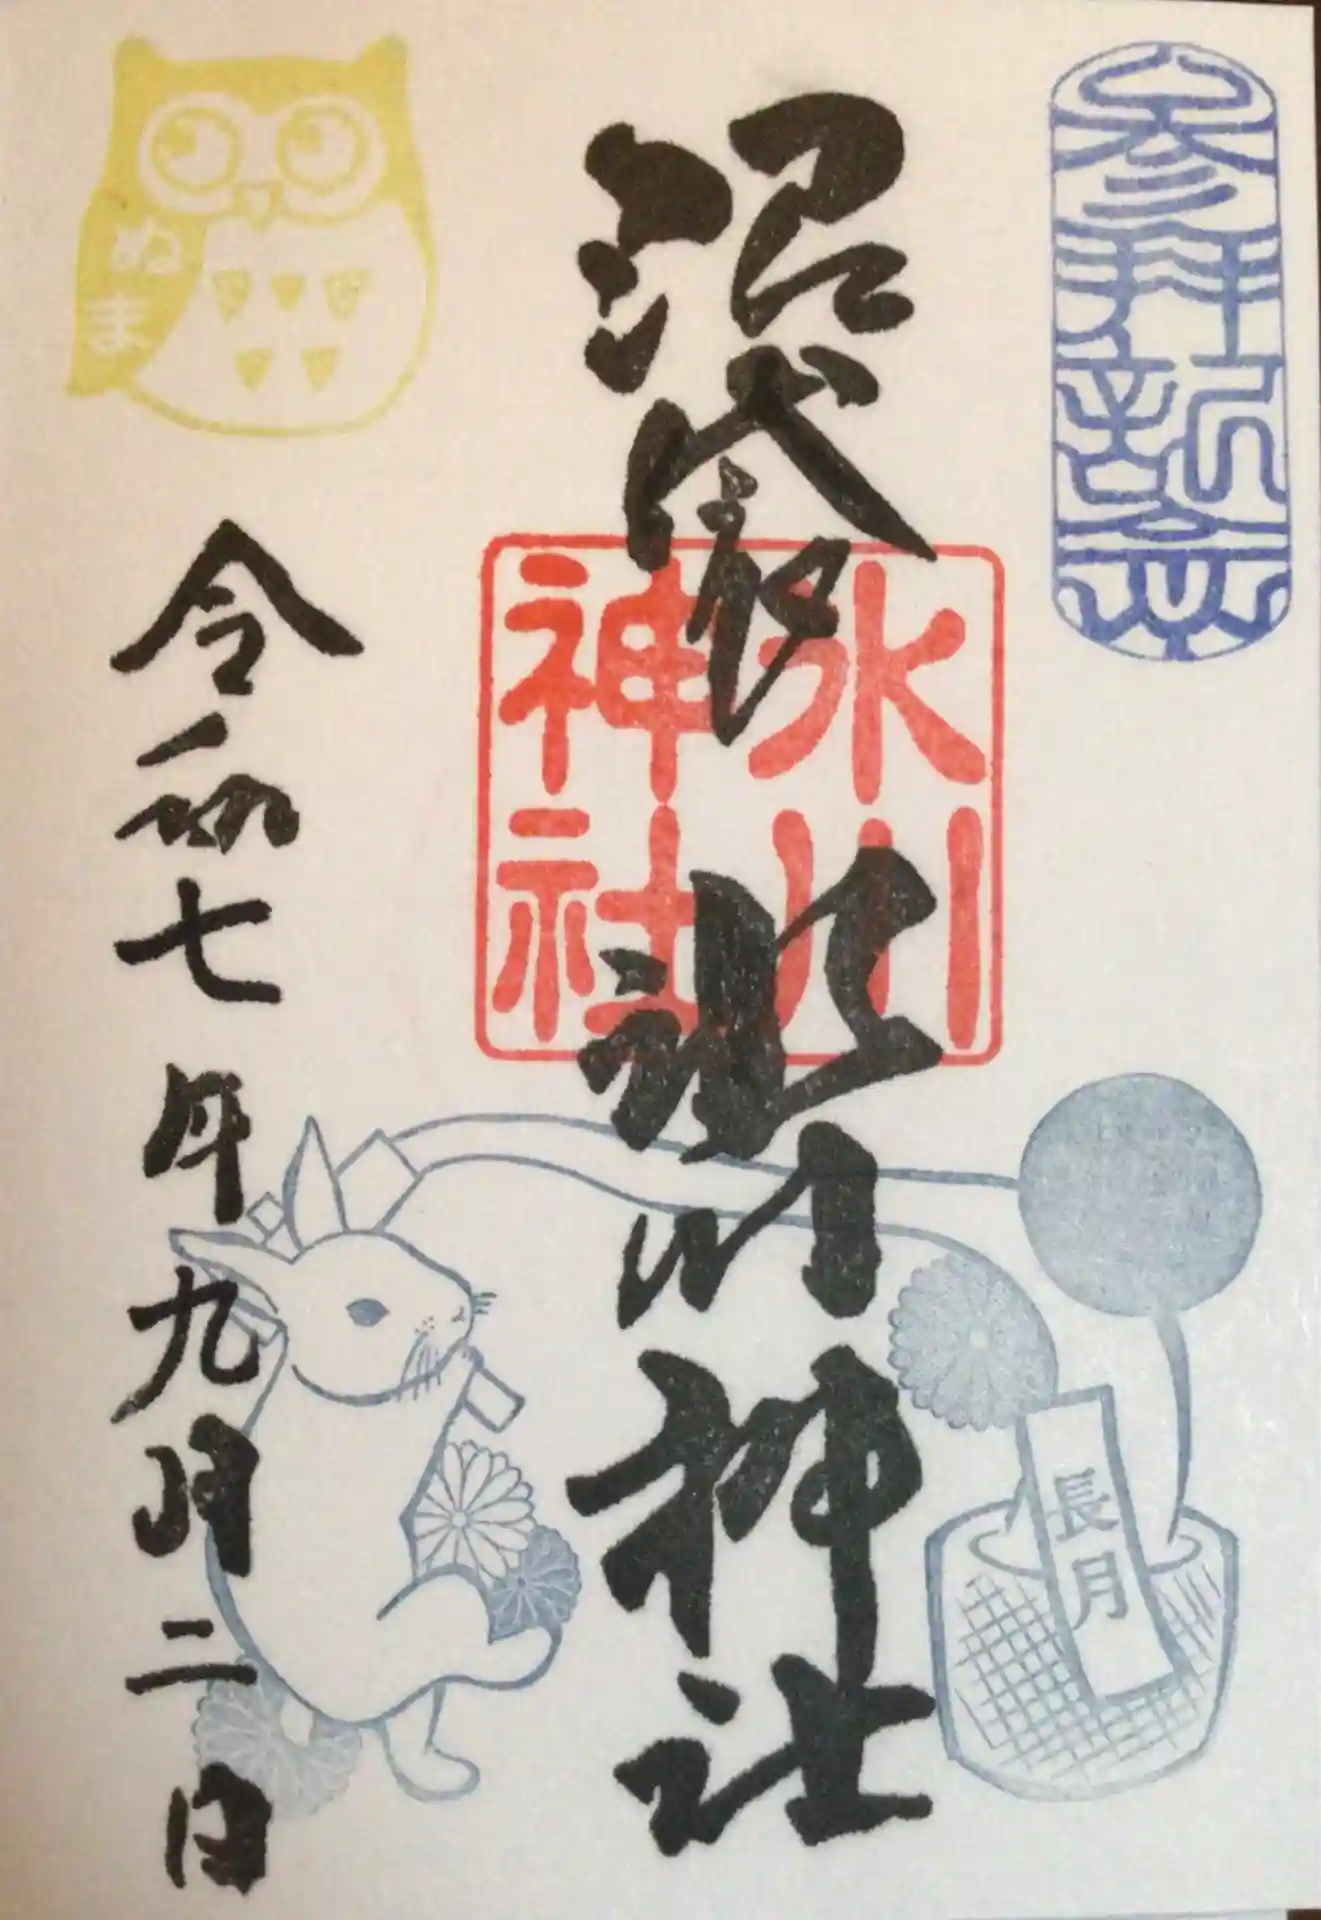 参拝記念
沼袋 氷川神社
氷川
神社
長月
ぬま
令和七年九月二日